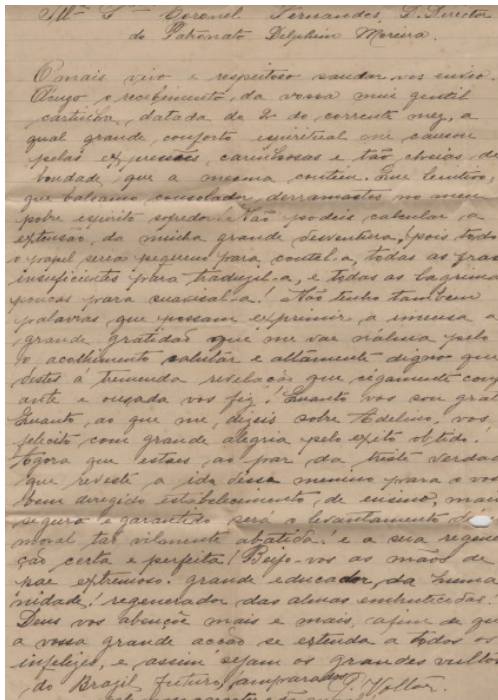 Illmo Snr Coronel Fernandes, D. Director
do Patronato Delphim Moreira.
O mais vivo e respeitoso saudar vos envio.
Accuso o recebimento da vossa mui gentil
cartinha, datada de 2 do corrente mez, a
qual grande conforto espiritual me causou
pelas expressões carinhosas e tão cheias de
bondade que a mesma contem. Que lenitivo,
que balsamo consolador, derramastes no meu
pobre espirito Não podeis calcular a
extensão da minha grande desventura, pois todo
o papel seria pequeno para contel-a, todas as fras
insuficientes para traduzil-a, e todas as lagrima
poucas para suavisal-a! Não tenho tambem
palavras que possam exprimir a imensa a
grande gratidão que me vae n'alma pelo
o acolhimento salutar e altamente digno que
déstes á tremenda revelação que cégamente conf
ante e ousada vos fiz! Quanto vos sou grat
Quanto, ao que me, dizeis sobre Adelino, vos
felicito com grande alegria pelo exito obtido!
Agora que estaes ao par da triste verdad
que reveste a ida desse menino para o vos
bem deregido estabelecimento de ensino, mais
segura e garantido será o levantamento d
moral tão vilmente abatida! e a sua regene
ção certa e perfeita! Beijo-vos as mãos de
pae extremoso. grande educador, da huma
nidade! regenerador das almas embrutecidas.
Deus vos abençõe mais e mais, afim de qu
a vossa grande acção se extenda a todos os
infelizes, e assim sejam os grandes vultos
do Brazil futuro, amparados